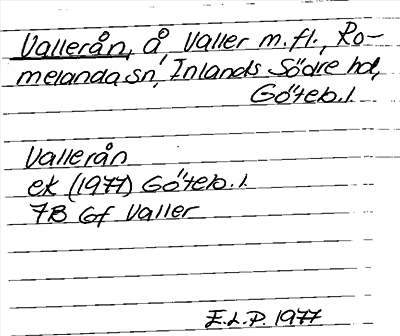 Vallerån, å, Valler m.fl., Ro-
melanda sn, Inlands Södre hd,
Göteb. l.
Vallerån
ek (1977) Göteb. l.
7B Gf Valler
E.L.P. 1977